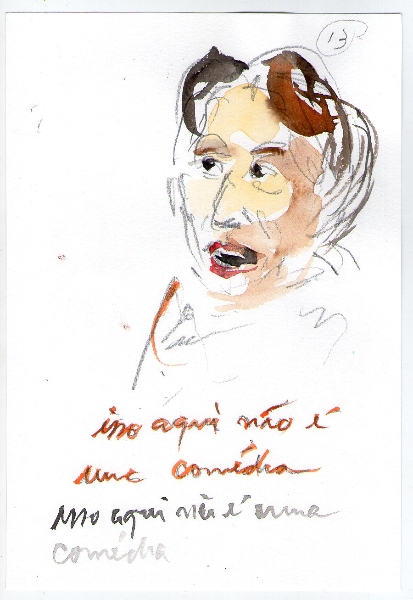 13
isso aqui não é
uma comédia
isso aqui não é uma
comédia